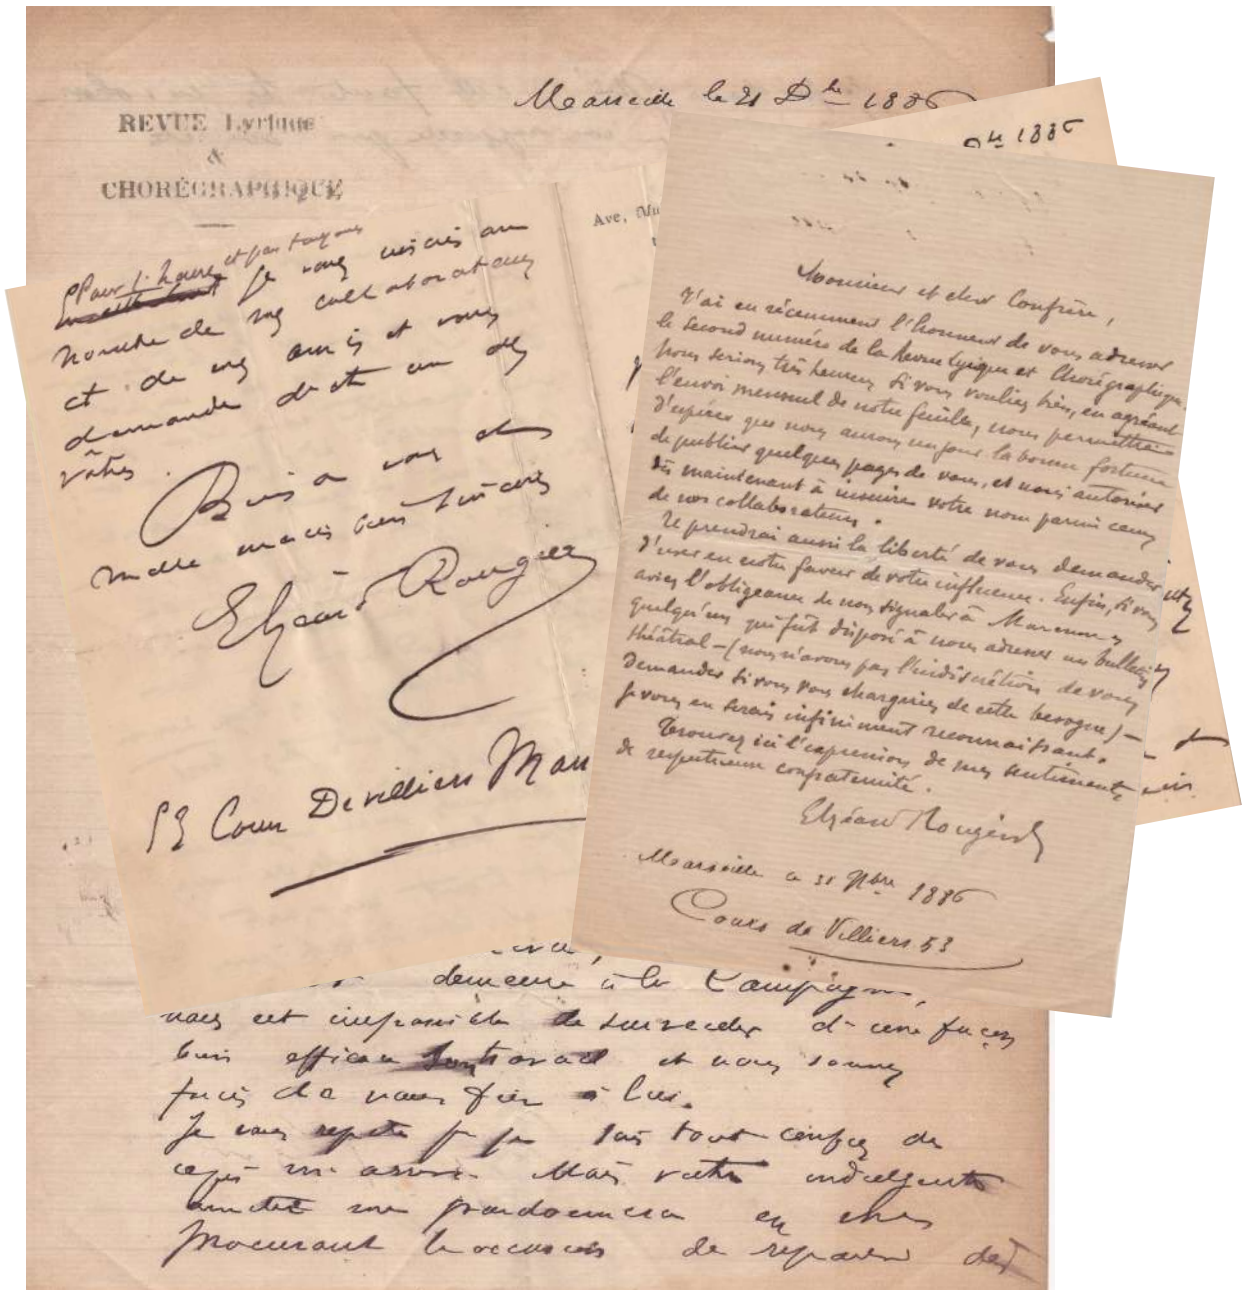 Marseille le 21 Dbre 1886
REVUE Lyrique
&
CHORÉGRAPHIQUE
bre 1886
Ave,
Pour l'heure et par toujours
je vous inscris au
nombre de mes collaborateurs
et de mes amis et vous
demande d'être un des
vôtres.
Bien à vous et
mille mercis bien sincères
Elzéard Rougier
53 Cours Devilliers Mar
Monsieur et cher Confrère,
J'ai eu récemment l'honneur de vous adresser
le second numéro de la Revue lyrique et Chorégraphique.
Nous serions très heureux si vous vouliez bien, en agréant
l'envoi mensuel de notre feuille, nous permettre
d'espérer que nous aurons un jour la bonne fortune
de publier quelques pages de vous, et nous autoriser
dès maintenant à inscrire votre nom parmi ceux
de nos collaborateurs.
Je prendrai aussi la liberté de vous demander
d'user en notre faveur de votre influence. Enfin, si vous
aviez l'obligeance de nous signaler à Marennes
quelqu'un qui fût disposé à nous adresser un bulletin
théâtral - (nous n'avons pas l'indiscrétion de vous
demander si vous vous chargeriez de cette besogne) -
je vous en serais infiniment reconnaissant.
Trouvez ici l'expression de mes sentiments
de respectueuse confraternité.
Elzéard Rougier
Marseille ce 31 Xbre 1886
Cours de Villiers 53
demeure à la Campagne,
nous est impossible de surveiller d'une façon
bien efficace son travail et nous sommes
forcés de nous fier à lui.
Je vous répète que je suis tout confus de
ce qui m'arrive. Mais votre indulgente
amitié me pardonnera en me
procurant l'occasion de réparer